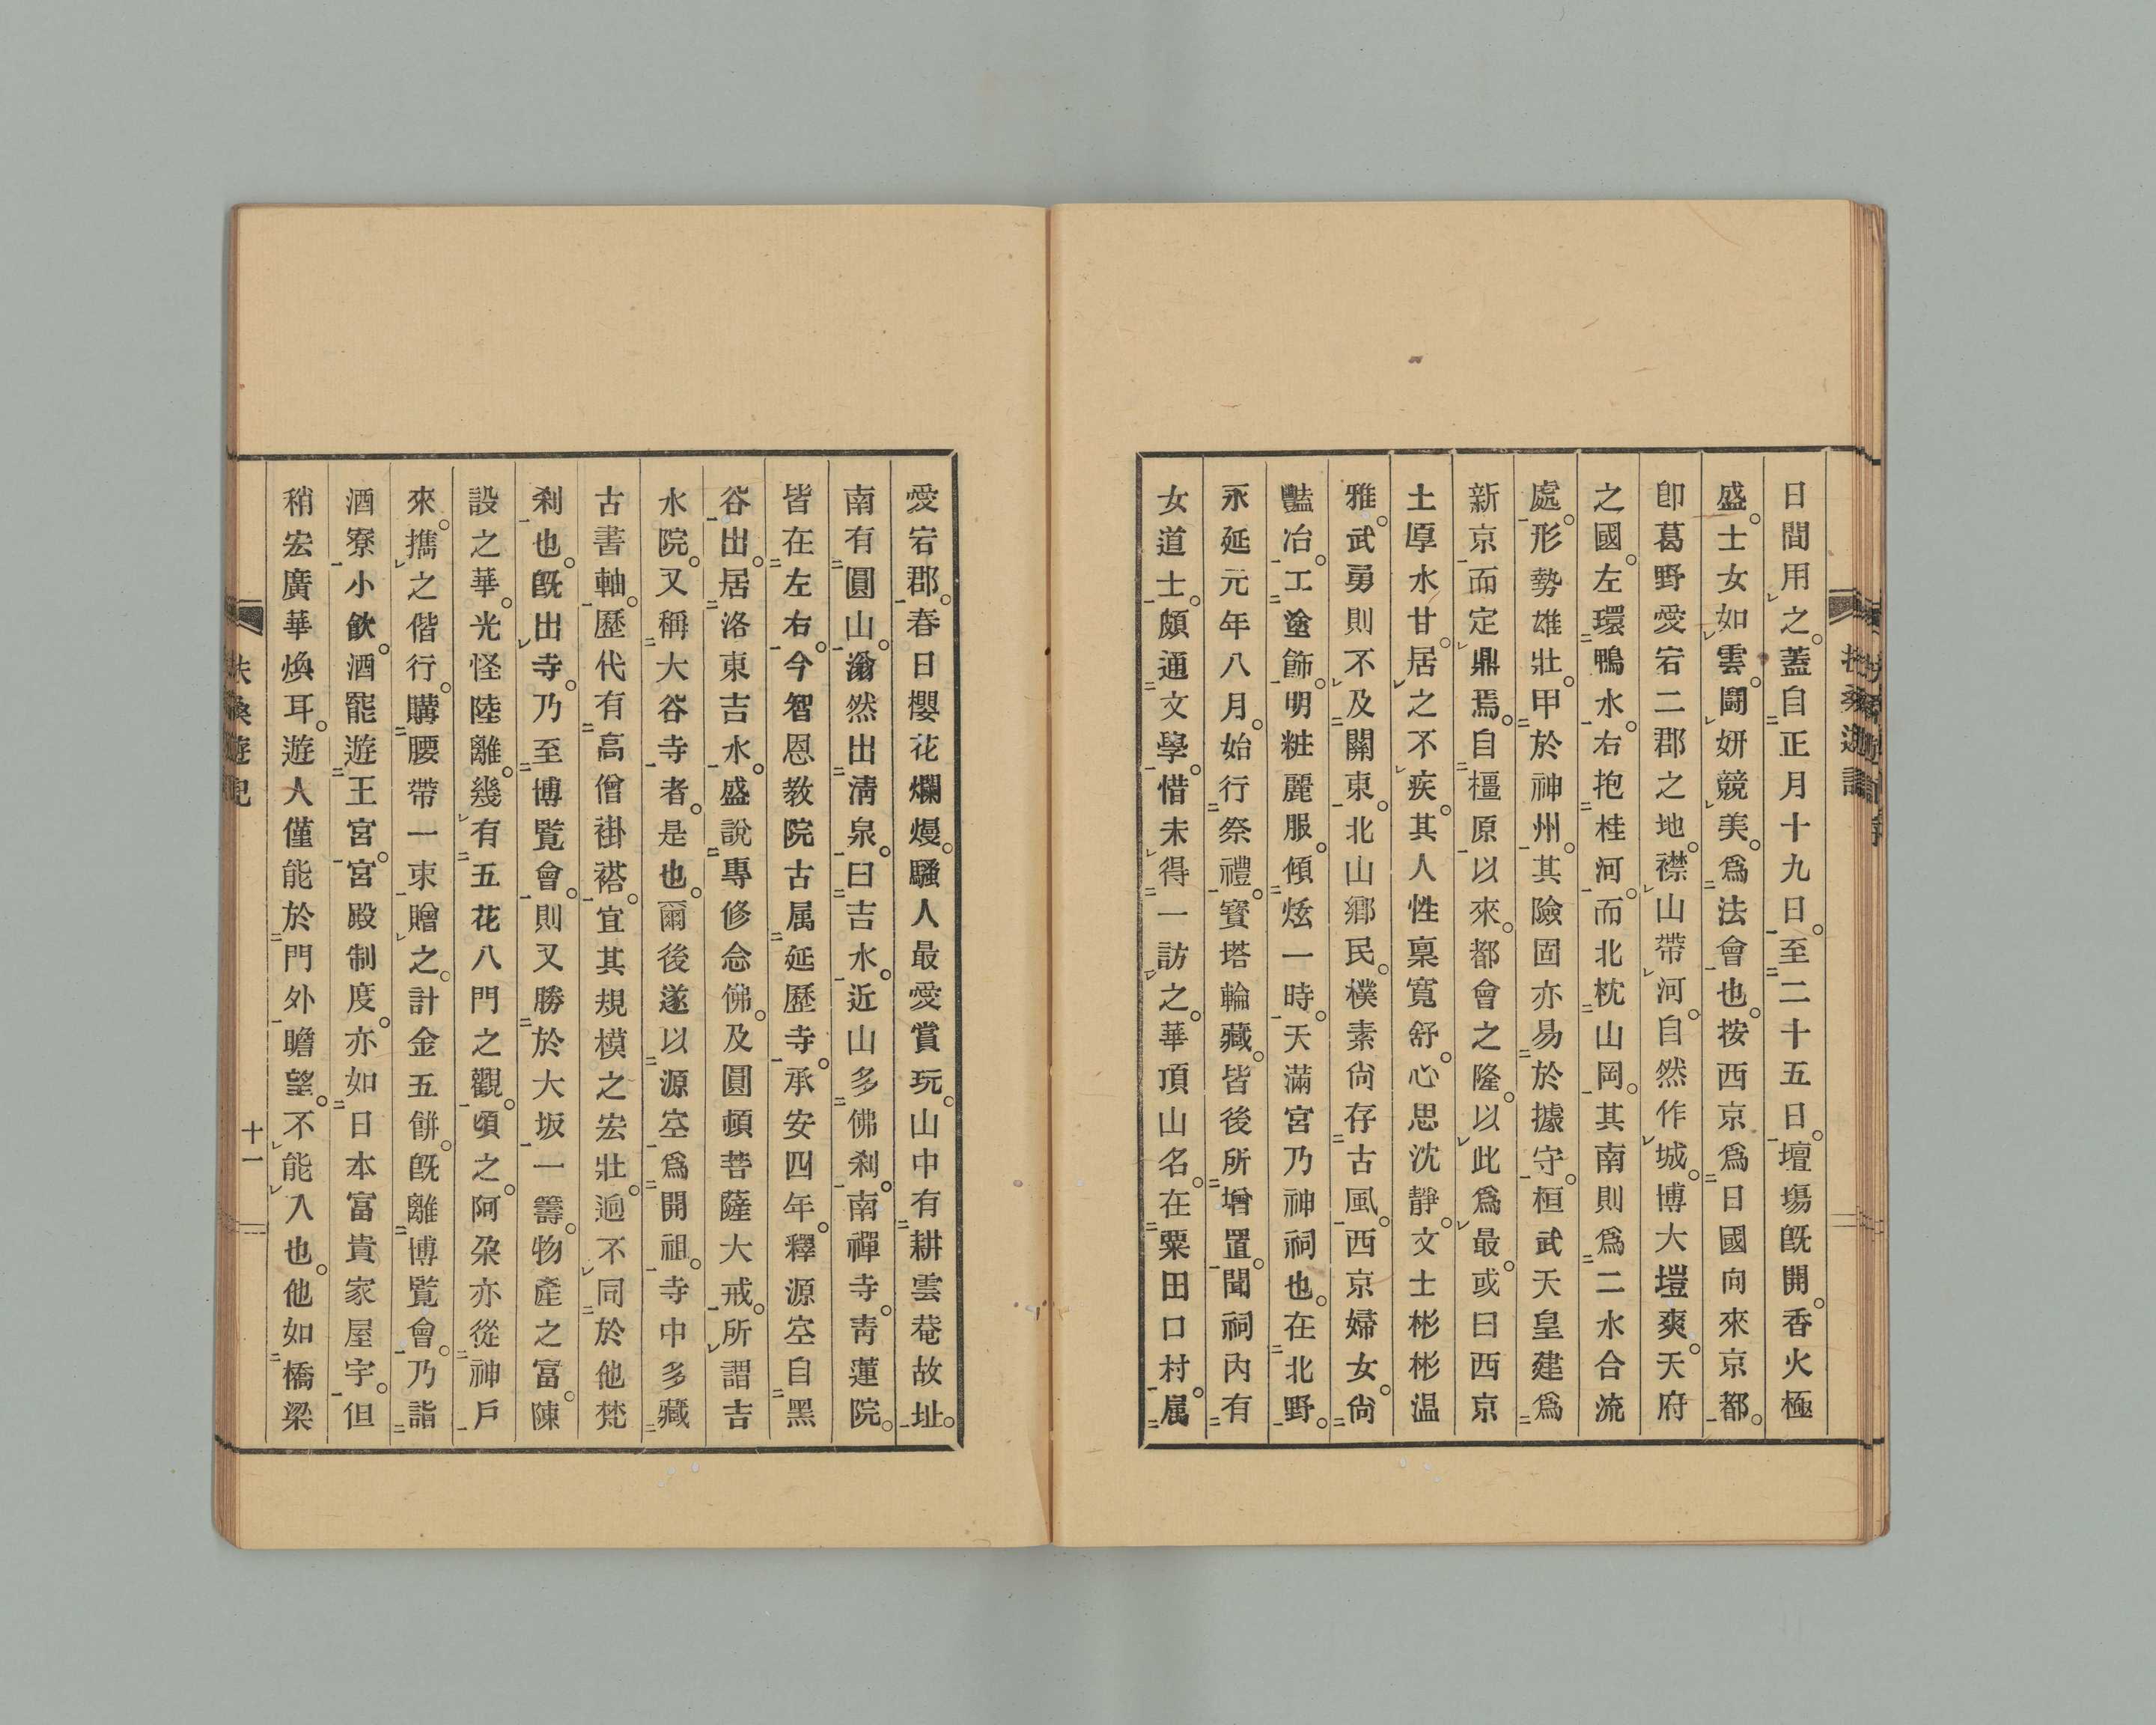 日間用之。蓋自正月十九日。至二十五日。壇塲既開。香火極
盛。士女如雲。鬪妍競美。爲法會也。按西京爲日國向來京都。
卽葛野愛宕二郡之地。襟山帶河。自然作城。博大塏爽。天府
之國。左環鴨水。右抱桂河。而北枕山岡。其南則爲二水合流
處。形勢雄壯。甲於神州。其險固亦易於據守。桓武天皇建爲
新京而定鼎焉。自橿原以來。都會之隆。以此爲最。或曰西京
土厚水甘。居之不疾。其人性稟寬舒。心思沈靜。文士彬彬温
雅。武勇則不及關東。北山鄉民。樸素尙存古風。西京婦女。尙
豔冶。工塗飾。明粧麗服。傾炫一時。天滿宮乃神祠也。在北野。
永延元年八月。始行祭禮。寶塔輪藏。皆後所增置。聞祠內有
女道士。頗通文學。惜未得一訪之。華頂山名。在粟田口村。属
愛宕郡。春日櫻花爛熳。騷人最愛賞玩。山中有耕雲菴故址。
南有圓山。瀚然出淸泉。曰吉水。近山多佛刹。南禪寺。靑蓮院。
皆在左右。今智恩敎院古属延歷寺。承安四年。釋源空自黑
谷出。居洛東吉水。盛說專修念佛。及圓頓菩薩大戒。所謂吉
水院。又稱大谷寺者。是也。爾後遂以源空爲開祖。寺中多藏
古書軸。歷代有高僧褂褡。宜其規模之宏壯。逈不同於他梵
刹也。既出寺。乃至博覧會。則又勝於大坂一籌。物產之富。陳
設之華。光怪陸離。幾有五花八門之觀。頃之。阿朶亦從神戶
來。擕之偕行。購腰帶一束贈之。計金五餅。既離博覧會。乃詣
酒寮小飮。酒罷遊王宮。宮殿制度。亦如日本富貴家屋宇。但
稍宏廣華煥耳。遊人僅能於門外瞻望。不能入也。他如橋梁
十一